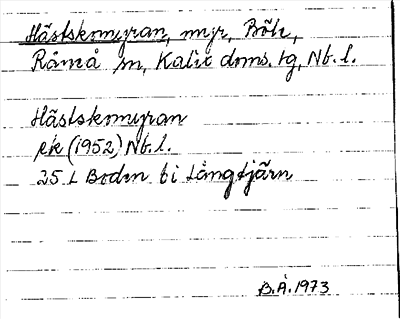 Hästskomyran, myr, Böle,
Råneå sn, Kalix doms. tg, Nb. l.
Hästskomyran
ek (1952) Nb. l.
25 L Boden bi Långtjärn
B.Å. 1973